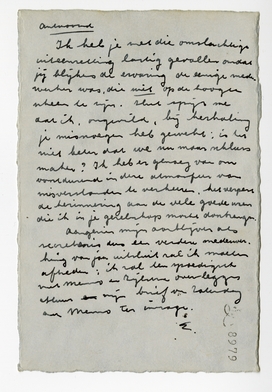 Antwoord
Ik heb je met die omslachtige
uiteenzetting lastig gevallen omdat
jij blijkens de ervaring de eenige mede
werker was, die niet op de hoogte
scheen te zijn. Het spijt me
dat ik, ongewild, bij herhaling
je misnoegen heb gewekt; is het
niet beter dat we nu maar schluss
maken? Ik heb er genoeg van om
voortdurend in deze atmosfeer van
misverstanden te verkeeren, het vergeet
de herinnering aan de vele goede uren
die ik in je gezelschap mocht doorbrengen.
Aangezien mijn aanblijven als
secretaris een verdere medewer-
king van jou uitsluit zal ik moeten
aftreden; ik zal den
Menno en
mijn brief v. Zaterdag
aan Menno ter inzage.
E.
8979